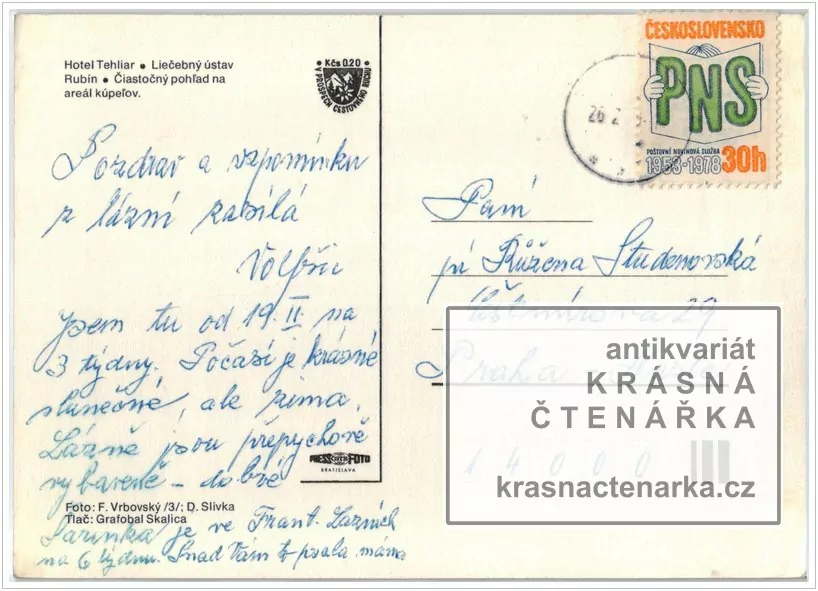 Hotel Tehliar • Liečebný ústav
Rubín • Čiastočný pohľad na
areál kúpeľov.
• Kčs 0.20 •
V PROSPECH CESTOVNÉHO RUCHU
ČESKOSLOVENSKO
PNS
POŠTOVNÍ NOVINOVÁ SLUŽBA
1953-1978 30h
26 2
Pozdrav a vzpomínku
z lázní zasílá
Jsem tu od 19. II. na
3 týdny. Počasí je krásné
slunečné, ale zima.
Lázně jsou přepychově
vybavené - dobré
Foto: F. Vrbovský /3/; D. Slivka
Tlač: Grafobal Skalica
Jarinka je ve Frant. Lázních
na 6 týdnů. Snad Vám to psala máma
PRESSFOTO
BRATISLAVA
Paní
pí Růžena Studenovská
29
Praha
14000
antikvariát
KRÁSNÁ
ČTENÁŘKA
krasnactenarka.cz